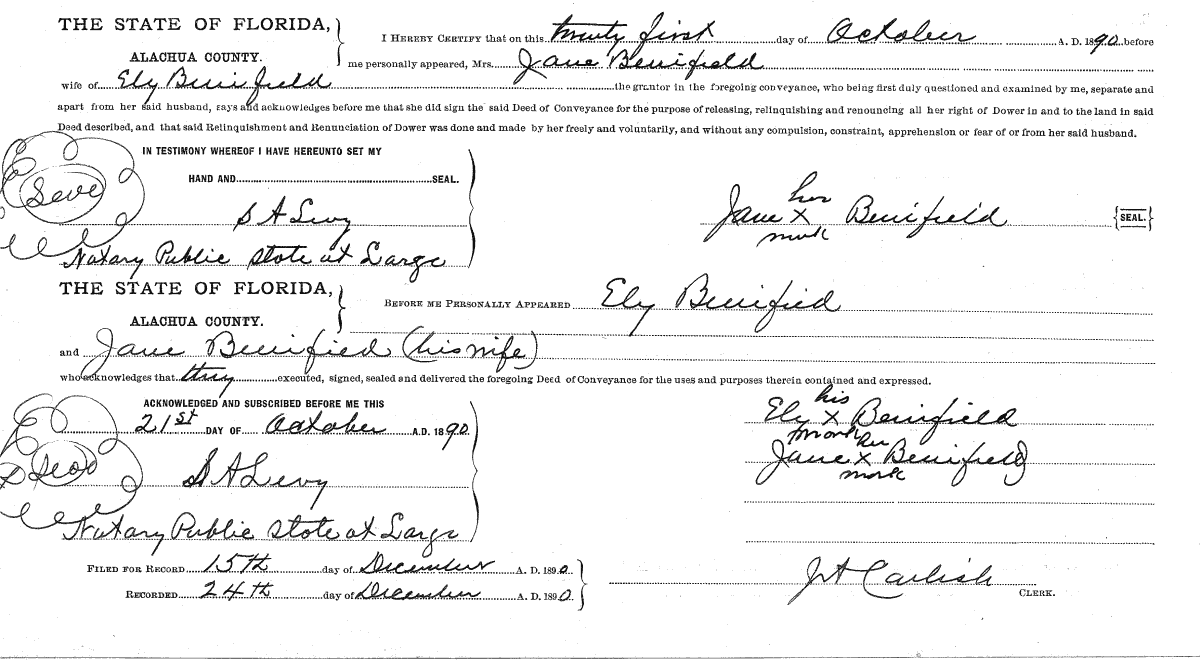 THE STATE OF FLORIDA,
ALACHUA COUNTY.
I HEREBY CERTIFY that on this twenty first day of October A. D. 1890 before
me personally appeared, Mrs. Jane Benifield
wife of Ely Benifield the grantor in the foregoing conveyance, who being first duly questioned and examined by me, separate and
apart from her said husband, says and acknowledges before me that she did sign the said Deed of Conveyance for the purpose of releasing, relinquishing and renouncing all her right of Dower in and to the land in said
Deed described, and that said Relinquishment and Renunciation of Dower was done and made by her freely and voluntarily, and without any compulsion, constraint, apprehension or fear of or from her said husband.
IN TESTIMONY WHEREOF I HAVE HEREUNTO SET MY
HAND AND SEAL.
S A Levy
Notary Public state at Large
her
Jane X Benifield {SEAL.}
mark
THE STATE OF FLORIDA,
ALACHUA COUNTY.
BEFORE ME PERSONALLY APPEARED Ely Benified
and Jane Benified (his wife)
who acknowledges that they executed, signed, sealed and delivered the foregoing Deed of Conveyance for the uses and purposes therein contained and expressed.
ACKNOWLEDGED AND SUBSCRIBED BEFORE ME THIS
21st DAY OF October A.D. 1890
S A Levy
Notary Public state at Large
his
Ely X Benifield
mark her
Jane X Benifield
mark
FILED FOR RECORD 15th day of December A. D. 1890
RECORDED 24th day of December A. D. 1890
CLERK.